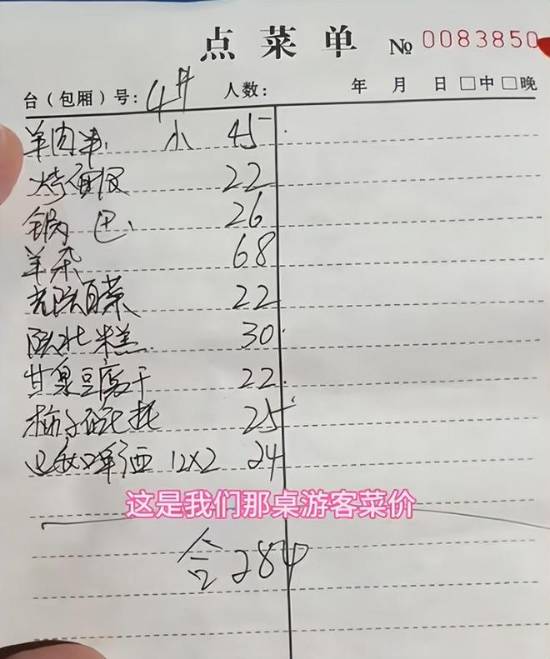 点菜单 № 0083850
台(包厢)号: 4# 人数: 年 月 日 □中 □晚
羊肉 小 45
22
锅巴 26
羊杂 68
白菜 22
陕北糕 30
甘泉豆腐干 22
柿子 25
啤酒 12x2 24
这是我们那桌游客菜价
合284